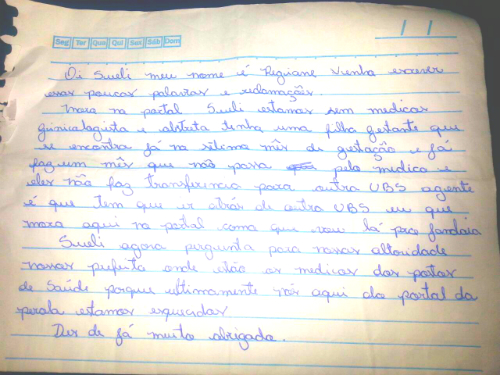 Seg Ter Qua Qui Sex Sáb Dom
Oi Sueli meu nome é Regiane venho escrever
essas poucas palavras e reclamações
mora na portal Sueli estamos sem medicos
ginicalogista e obstetra tenho uma filha gestante que
se encontra já na sétimo mês de gestação e já
faz um mês que não passa pelo medico e
eles não faz transferencia para outra UBS agente
é que tem que ir atrás de outra UBS eu que
mora aqui no portal como que vou lá pro jandaia
Sueli agora pergunta para nossas altoridade
nossas prefeito onde estão os medicos dos postos
de Saúde porque ultimamente nós aqui do portal da
perola estamos esquecidos
Des de já muito obrigada.